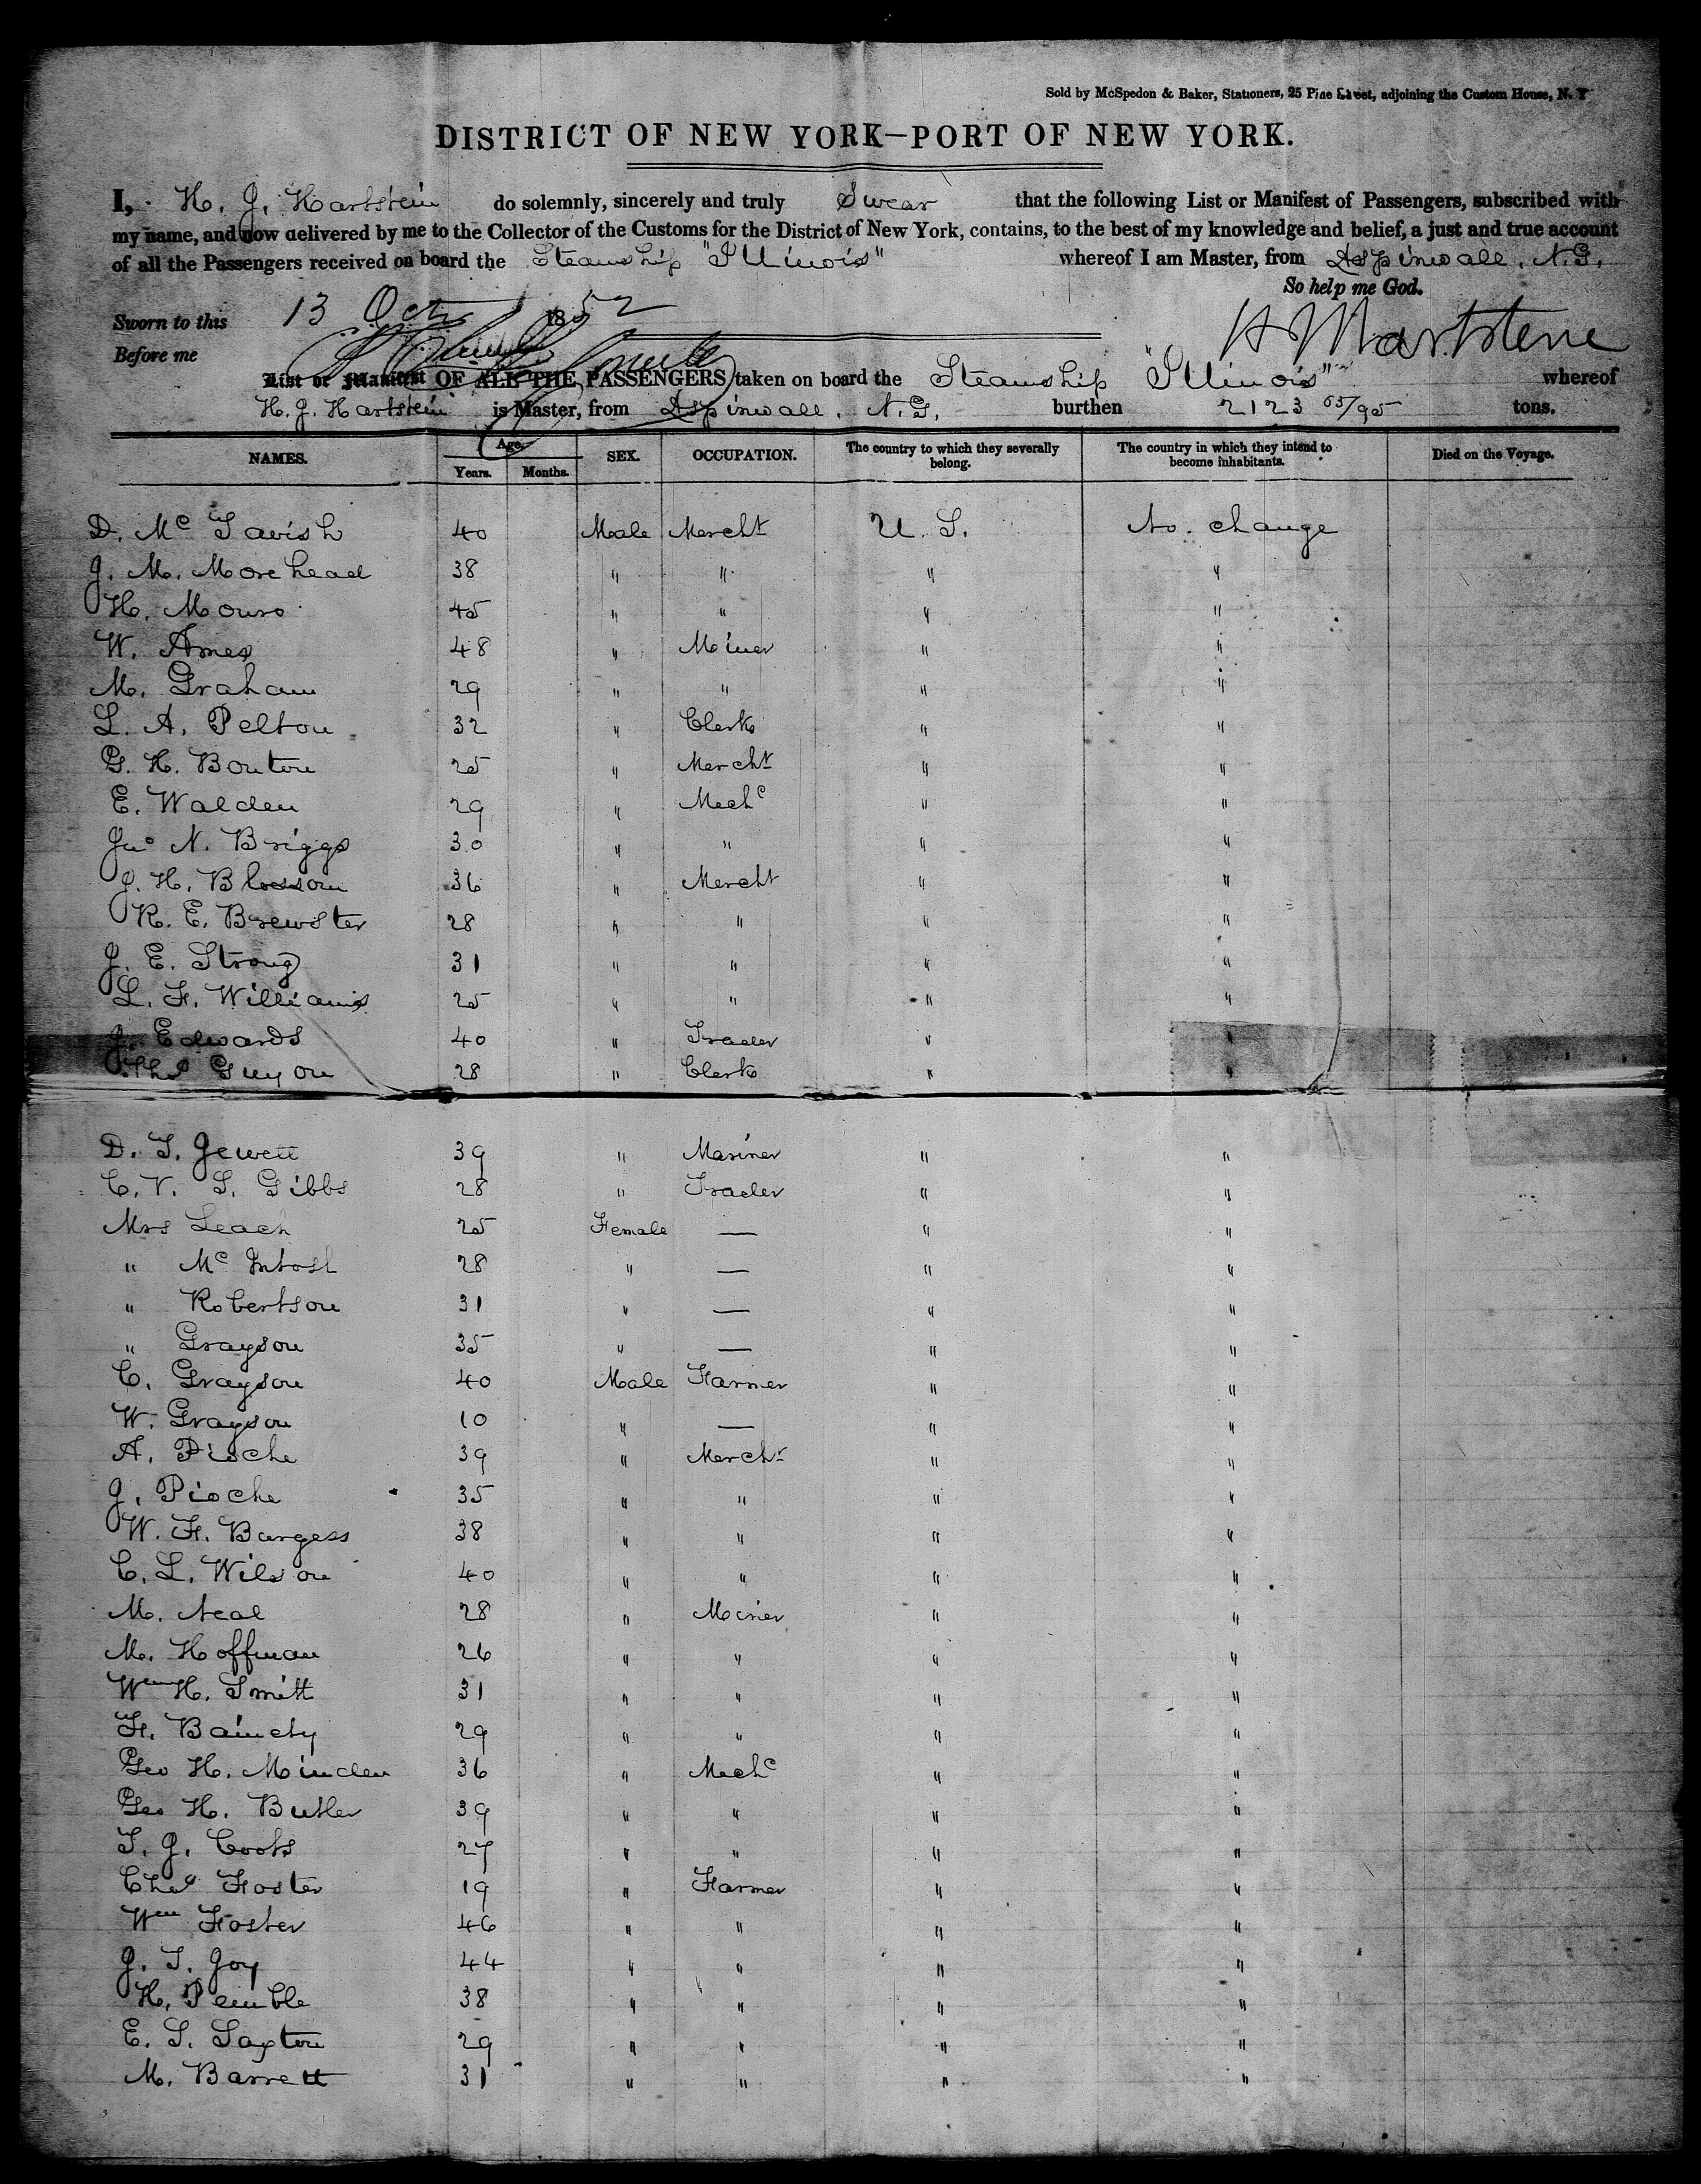 Sold by McSpedon & Baker, Stationers, 25 Pine Street, adjoining the Custom House, N. Y
DISTRICT OF NEW YORK—PORT OF NEW YORK.
I, H. J. Hartstein do solemnly, sincerely and truly Swear that the following List or Manifest of Passengers, subscribed with
my name, and now delivered by me to the Collector of the Customs for the District of New York, contains, to the best of my knowledge and belief, a just and true account
of all the Passengers received on board the Steamship "Illinois" whereof I am Master, from Aspinwall, N.G,
So help me God.
Sworn to this 13 Oct 1852
Before me H J Hartstene
List or Manifest OF ALL THE PASSENGERS taken on board the Steamship "Illinois" whereof
H. J. Hartstein is Master, from Aspinwall, N.G, burthen 2123 65/95 tons.
NAMES. Age. Years. Months. SEX. OCCUPATION. The country to which they severally belong. The country in which they intend to become inhabitants. Died on the Voyage.
D. Mc Tavish 40 Male Mercht U. S. No. change
J. M. Morehead 38 " " " "
H. Monro 45 " " " "
W. Ames 48 " Miner " "
M. Graham 29 " " " "
L. A. Pelton 32 " Clerk " "
G. H. Bonton 25 " Mercht " "
E. Walden 29 " Mechc " "
Jno N. Briggs 30 " " " "
J. H. Blossom 36 " Mercht " "
R. E. Brewster 28 " " " "
J. E. Strong 31 " " " "
L. F. Williams 25 " " " "
J. Edwards 40 " Trader " "
Thos Guyon 28 " Clerk " "
D. T. Jewett 39 " Mariner " "
C. V. S. Gibbs 28 " Trader " "
Mrs Leach 25 Female — " "
" Mc Intosh 28 " — " "
" Robertson 31 " — " "
" Grayson 35 " — " "
C. Grayson 40 Male Farmer " "
W. Grayson 10 " — " "
A. Pioche 39 " Mercht " "
J. Pioche 35 " " " "
W. F. Burgess 38 " " " "
C. L. Wilson 40 " " " "
M. Neal 28 " Miner " "
M. Hoffman 26 " " " "
Wm H. Smitt 31 " " " "
F. Bainchy 29 " " " "
Geo H. Minden 36 " Mechc " "
Geo H. Butler 39 " " " "
T. J. Cooks 27 " " " "
Chas Foster 19 " Farmer " "
Wm Foster 46 " " " "
J. T. Joy 44 " " " "
H. Pemble 38 " " " "
E. S. Saxton 29 " " " "
M. Barrett 31 " " " "